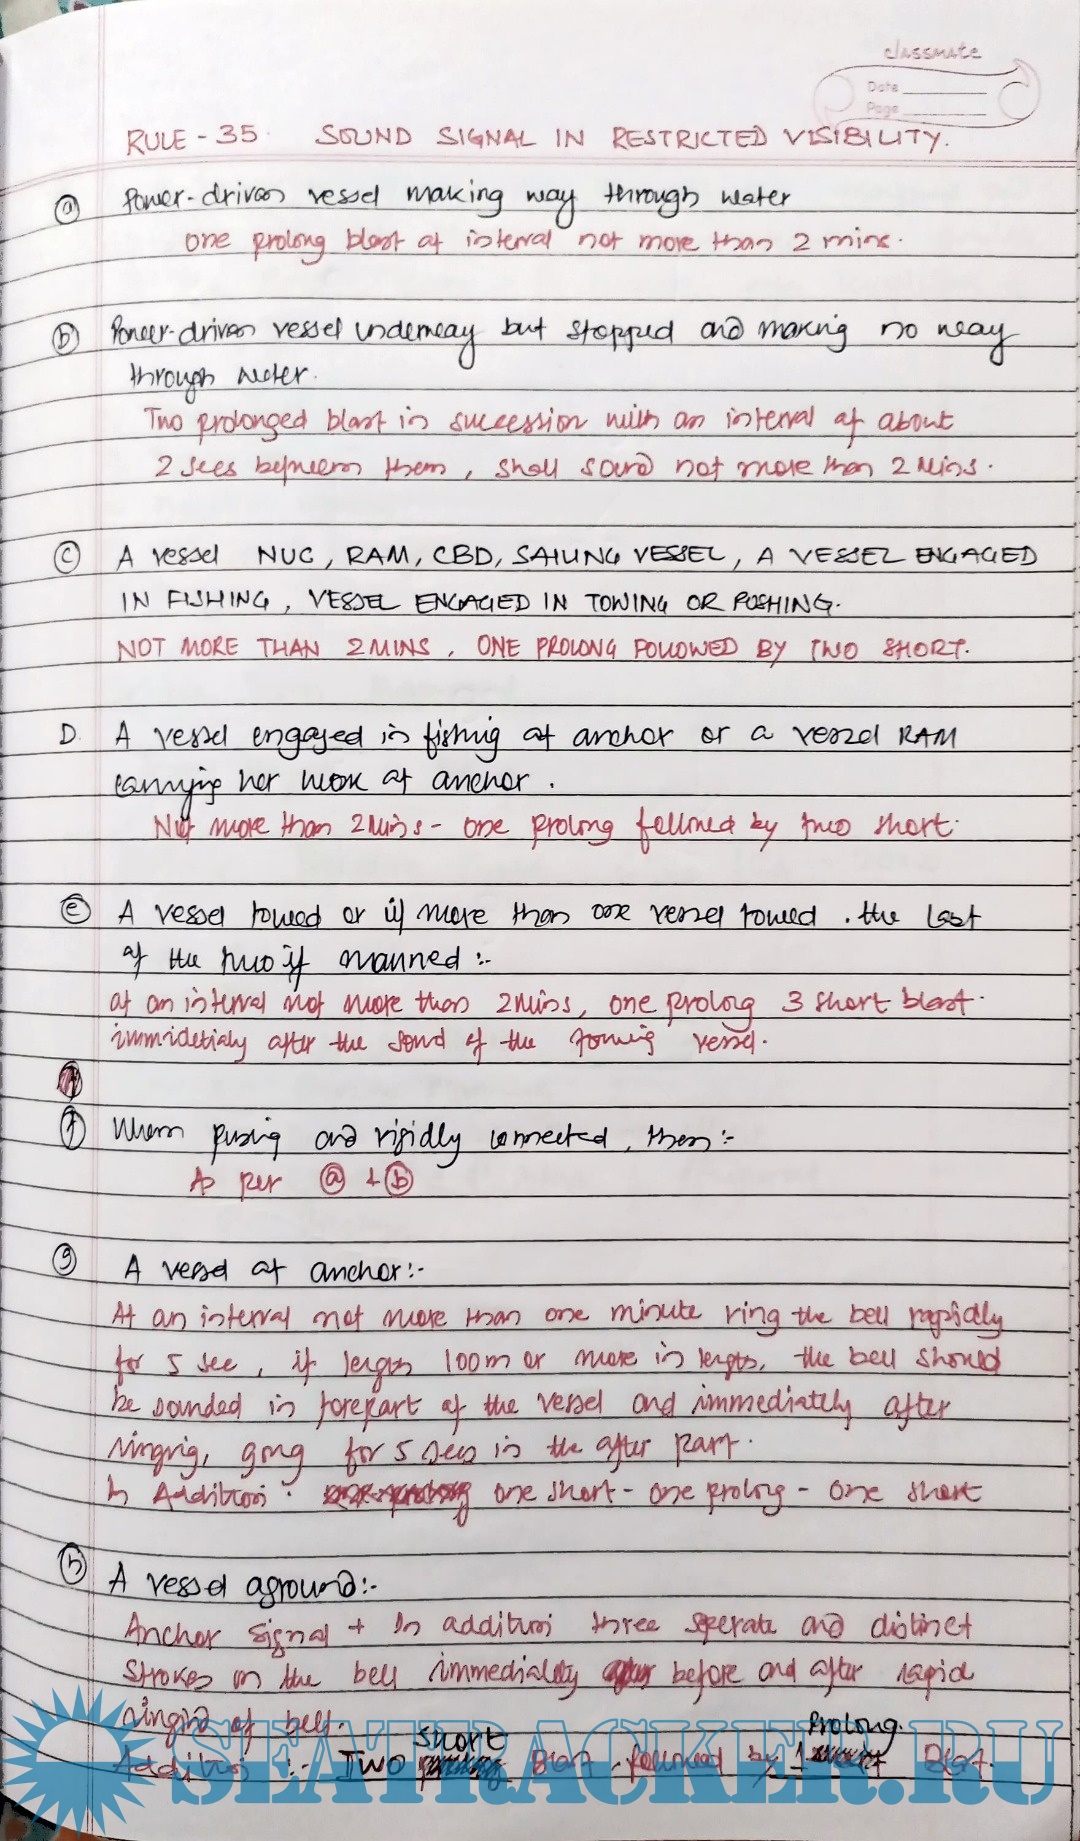 classmate
Date
Page
RULE - 35. SOUND SIGNAL IN RESTRICTED VISIBILITY.
(a) Power-driven vessel making way through water
one prolong blast at interval not more than 2 mins.
(b) Power-driven vessel underway but stopped and making no way
through water.
Two prolonged blast in succession with an interval of about
2 secs between them, shall sound not more than 2 Mins.
(c) A vessel NUC, RAM, CBD, SAILING VESSEL, A VESSEL ENGAGED
IN FISHING, VESSEL ENGAGED IN TOWING OR PUSHING.
NOT MORE THAN 2 MINS, ONE PROLONG FOLLOWED BY TWO SHORT.
D. A vessel engaged in fishing at anchor or a vessel RAM
carrying her work at anchor.
Not more than 2 Mins - one prolong followed by two short.
(e) A vessel towed or if more than one vessel towed. the last
of the two if manned :-
at an interval not more than 2 Mins, one prolog 3 short blast.
immidetialy after the sond of the towing vessel.
(f) When pusing and rigidly connected, then :-
As per (a) & (b)
(g) A vessel at anchor :-
At an interval not more than one minute ring the bell rapidly
for 5 sec, if length 100m or more in length, the bell should
be sounded in forepart of the vessel and immediately after
ringing, gong for 5 secs in the after part.
In Addition. one short - one prolong - one short
(h) A vessel aground :-
Anchor signal + In addition three seperate and distinct
strokes on the bell immediality before and after rapid
ringing of bell.
Addition :- TWO short Blast followed by 1 Prolong. Blast.
SEATRACKER.RU